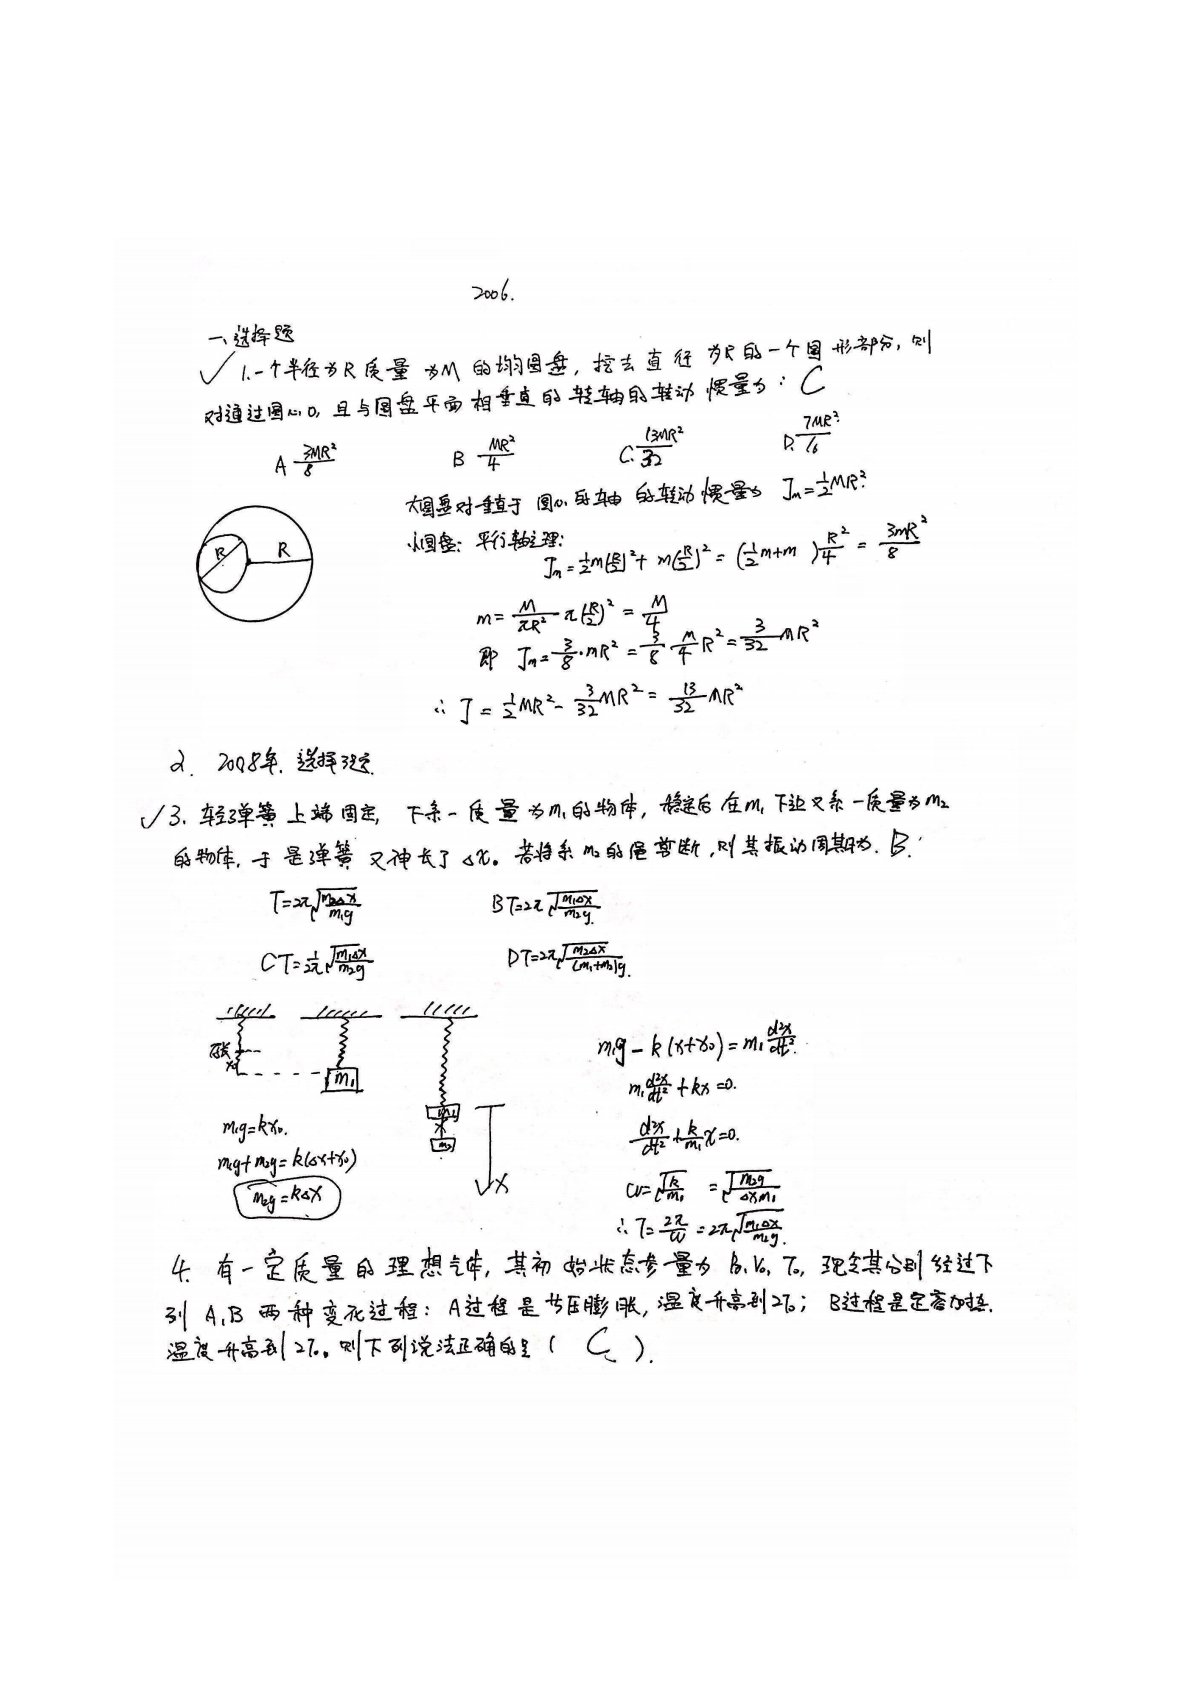 2006.
一、选择题
✓ 1.一个半径为R质量为M的均匀圆盘，挖去直径为R的一个圆形部分，则
对通过圆心O，且与圆盘平面相垂直的转轴的转动惯量为：C
A 3MR²/8 B MR²/4 C. 13MR²/32 D. 7MR²/16
大圆盘对垂直于圆心的轴的转动惯量为 J_M=½MR².
小圆盘：平行轴定理：
R R
J_m=½m(R/2)²+m(R/2)²=(½m+m)R²/4=3mR²/8
m=M/πR² π(R/2)²=M/4
即 J_m=3/8·mR²=3/8 M/4 R²=3/32 MR²
∴ J=½MR²-3/32 MR²=13/32 MR²
2. 2008年.选择3题.
✓3. 轻弹簧上端固定，下系一质量为m₁的物体，稳定后在m₁下边又系一质量为m₂
的物体，于是弹簧又伸长了Δx。若将系m₂的绳剪断，则其振动周期为.B.
T=2π√(m₂Δx/m₁g) B T=2π√(m₁Δx/m₂g)
C T=1/2π √(m₁Δx/m₂g) D T=2π√(m₂Δx/(m₁+m₂)g).
原长
x₀
m₁
m₁
m₂
X
m₁g=kx₀.
m₁g+m₂g=k(Δx+x₀)
m₂g=kΔx
m₁g-k(x+x₀)=m₁ d²x/dt².
m₁ d²x/dt²+kx=0.
d²x/dt²+k/m₁ x=0.
ω=√(k/m₁)=√(m₂g/Δxm₁)
∴T=2π/ω=2π√(m₁Δx/m₂g).
4. 有一定质量的理想气体，其初始状态参量为P₀,V₀,T₀，现令其分别经过下
列A,B两种变化过程：A过程是节压膨胀，温度升高到2T₀；B过程是定容加热.
温度升高到2T₀。则下列说法正确的是（ C ）.